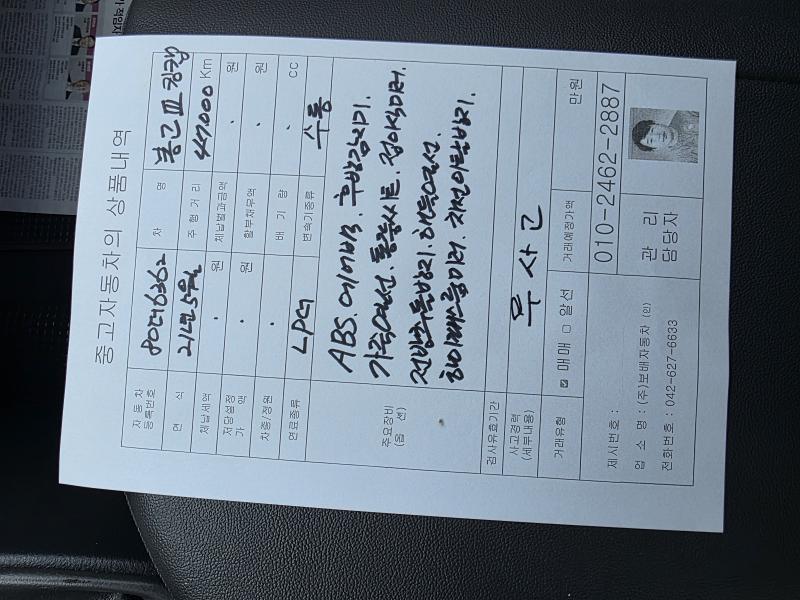 중고자동차의 상품내역
자동차 등록번호 80더6362 차 명 봉고Ⅲ 킹캡
연 식 21년5월 주행거리 47000 Km
체납세액 . 원 체납벌과금액 . 원
저당설정 가 액 . 원 할부채무액 . 원
차종/정원 . 배 기 량 . CC
연료종류 LPG 변속기종류 수동
주요장비 (옵 션)
ABS. 에어백. 후방감지기.
가죽열선. 통풍시트. 접이식미러.
전방추돌방지. 핸들열선.
하이패스룸미러. 차선이탈방지.
검사유효기간
사고경력 (세부내용) 무사고
거래유형 ☑ 매매 □ 알선 거래예정가액 만원
제시번호 :
업 소 명 : (주)보배자동차 (인)
전화번호 : 042-627-6633
010-2462-2887
관 리
담당자